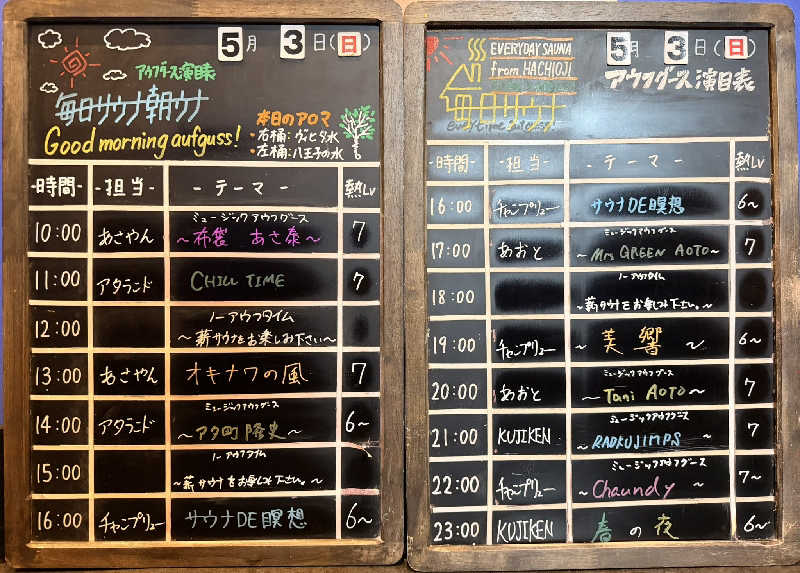 5月 3日(日)
アウフグース演目表
毎日サウナ朝ウナ
Good morning aufguss!
本日のアロマ
・右桶:ヴィヒタ水
・左桶:八王子の水
-時間- -担当- -テーマ- 熱Lv
10:00 あさやん ミュージックアウフグース ~布袋 あさ泰~ 7
11:00 アタランド CHILL TIME 7
12:00 ノーアウフタイム ~薪サウナをお楽しみ下さい~
13:00 あさやん オキナワの風 7
14:00 アタランド ミュージックアウフグース ~アタ町隆史~ 6~
15:00 ノーアウフタイム ~薪サウナをお楽しみ下さい。~
16:00 チャンプリュー サウナDE瞑想 6~
5月 3日(日)
EVERYDAY SAUNA
from HACHIOJI
毎日サウナ
アウフグース演目表
-時間- -担当- -テーマ- 熱Lv
16:00 チャンプリュー サウナDE瞑想 6~
17:00 あおと ミュージックアウフグース ~Mrs GREEN AOTO~ 7
18:00 ノーアウフタイム ~薪サウナをお楽しみ下さい。~
19:00 チャンプリュー ~美響~ 6~
20:00 あおと ミュージックアウフグース ~Tani AOTO~ 7
21:00 KUJIKEN ミュージックアウフグース ~RADKUJIMPS~ 7
22:00 チャンプリュー ミュージックアウフグース ~Chaundy~ 7~
23:00 KUJIKEN 春の夜 6~